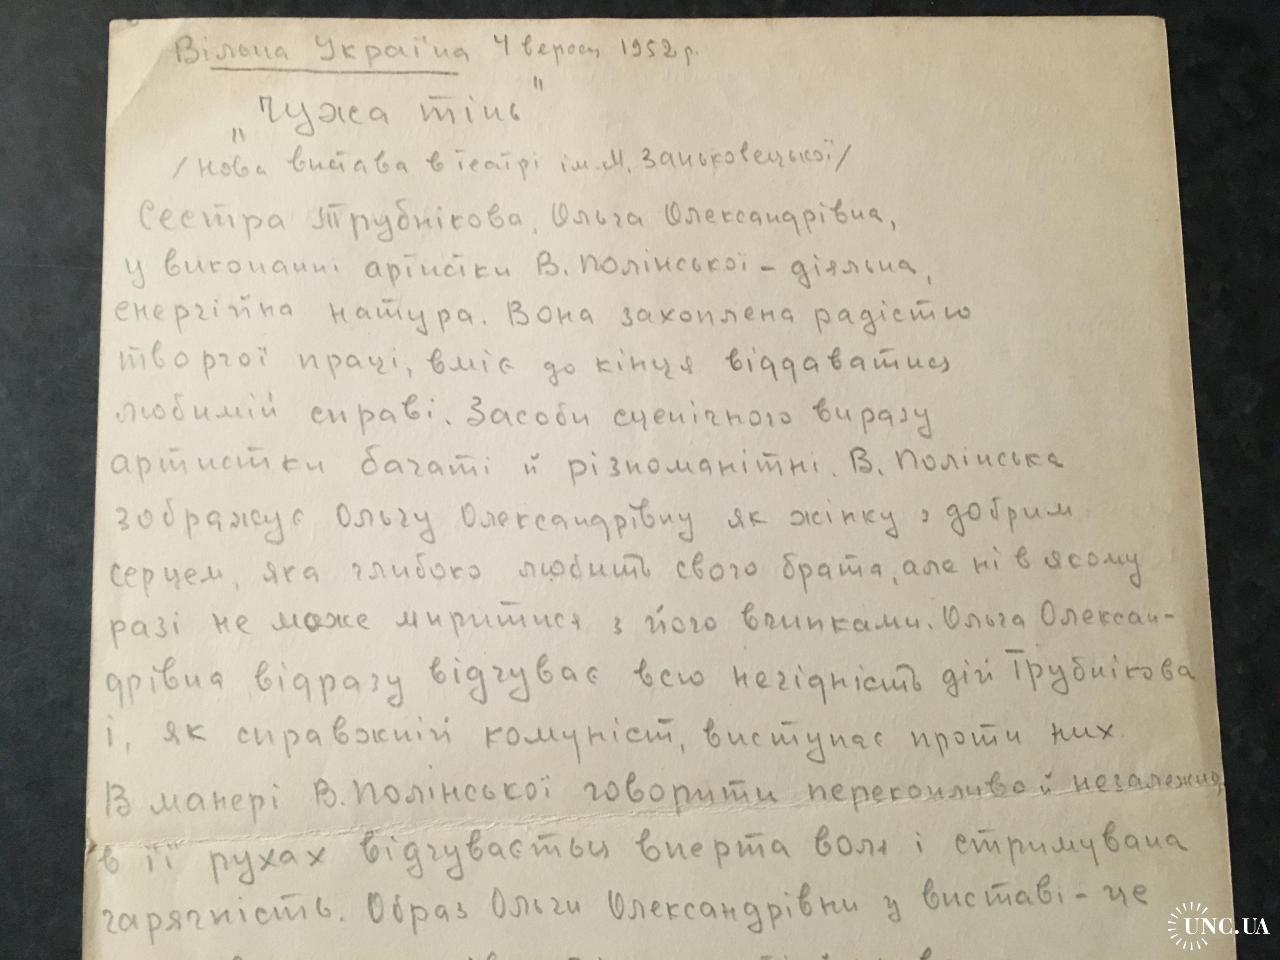 Вільна Україна 4 вересн 1952 р.
„Чужа тінь"
/Нова вистава в театрі ім. М. Заньковецької/
Сестра Трубнікова, Ольга Олександрівна,
у виконанні артистки В. Полінської – діяльна,
енергійна натура. Вона захоплена радістю
творчої праці, вміє до кінця віддаватись
любимій справі. Засоби сценічного виразу
артистки багаті й різноманітні. В. Полінська
зображує Ольгу Олександрівну як жінку з добрим
серцем, яка глибоко любить свого брата, але ні в якому
разі не може миритися з його вчинками. Ольга Олексан-
дрівна відразу відчуває всю негідність дій Трубнікова
і, як справжній комуніст, виступає проти них.
В манері В. Полінської говорити переконливо й незалежно,
в її рухах відчувається вперта воля і стримувана
гарячність. Образ Ольги Олександрівни у виставі – це
UNC.UA